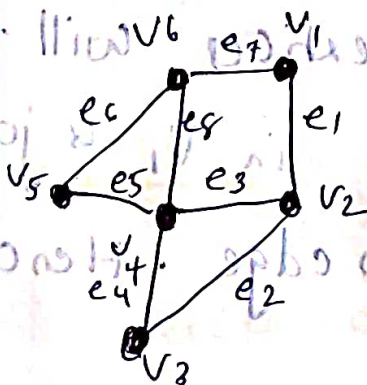 V6 e7 V1
e6 e8 e1
V5 e5 e3 V2
V4
e4 e2
V3